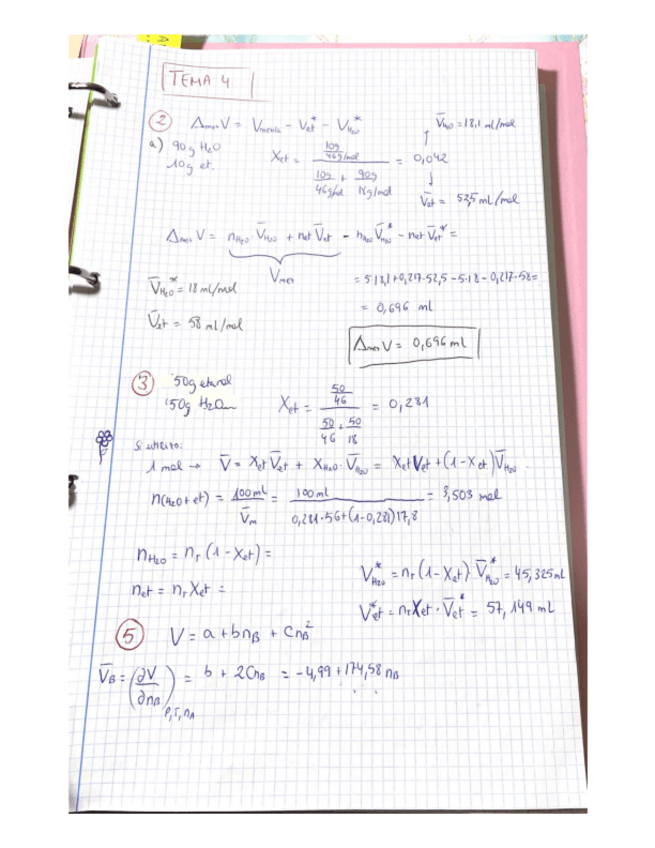 TEMA 4
② ΔmezV = Vmezcla - Vet* - VH2O*
V̄H2O = 18,1 ml/mol
a) 90g H2O
10g et.
Xet = (10g/46g/mol) / (10g/46g/mol + 90g/18g/mol) = 0,042
V̄et = 52,5 mL/mol
ΔmezV = nH2O V̄H2O + net V̄et - nH2O V̄H2O* - net V̄et* =
Vmez
V̄H2O* = 18 ml/mol
= 5·18,1+0,217·52,5-5·18-0,217·58=
V̄et = 58 ml/mol
= 0,696 ml
ΔmezV = 0,696 ml
③ 50g etanol
50g H2O
Xet = (50/46) / (50/46 + 50/18) = 0,281
1 mol → V̄ = Xet V̄et + XH2O · V̄H2O = Xet Vet + (1-Xet) V̄H2O
n(H2O+et) = 100mL / V̄m = 100ml / 0,281·56+(1-0,281)17,8 = 3,503 mol
nH2O = nT (1-Xet) =
VH2O* = nT (1-Xet) · V̄H2O* = 45,325ml
net = nT Xet =
Vet* = nT Xet · V̄et* = 57,149 mL
⑤ V = a + bnB + CnB²
V̄B = (∂V/∂nB)P,T,nA = b + 2CnB = -4,99+174,58 nB